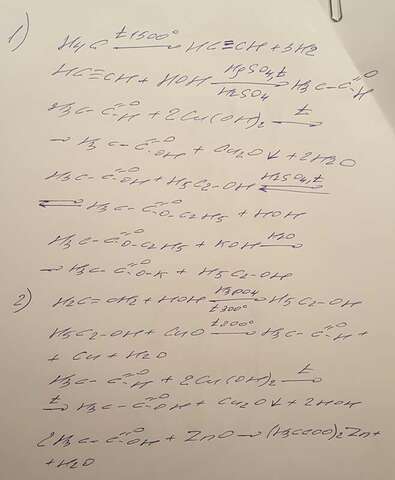 1) H₄C —t 1500°→ HC≡CH + 3H₂
HC≡CH + HOH —HgSO₄, t / H₂SO₄→ H₃C–C(=O)–H
H₃C–C(=O)–H + 2Cu(OH)₂ —t→
→ H₃C–C(=O)–OH + Cu₂O↓ + 2H₂O
H₃C–C(=O)–OH + H₅C₂–OH ⇌ H₂SO₄, t
⇌ H₃C–C(=O)–O–C₂H₅ + HOH
H₃C–C(=O)–O–C₂H₅ + KOH —H₂O→
→ H₃C–C(=O)–O–K + H₅C₂–OH
2) H₂C=CH₂ + HOH —H₃PO₄ / t 300°→ H₅C₂–OH
H₅C₂–OH + CuO —t 200°→ H₃C–C(=O)–H +
+ Cu + H₂O
H₃C–C(=O)–H + 2Cu(OH)₂ —t→
—t→ H₃C–C(=O)–OH + Cu₂O↓ + 2HOH
2H₃C–C(=O)–OH + ZnO → (H₃CCOO)₂Zn +
+ H₂O